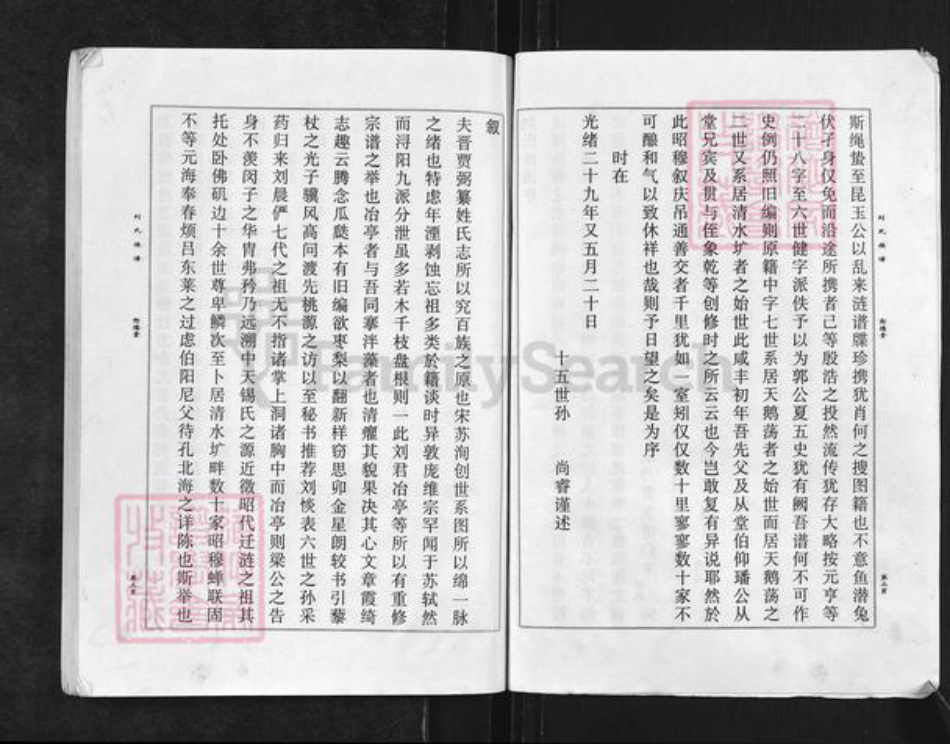 斯绳蛰至昆玉公以乱来涟谱牒珍携犹肖何之搜图籍也不意鱼潜兔
伏孑身仅免而沿途所携者己等殷浩之投然流传犹存大略按元亨等
二十八字至六世健字派佚予以为郭公夏五史犹有阙吾谱何不可作
史例仍照旧编则原籍中字七世系居天鹅荡者之始世而居天鹅荡之
二世又系居清水圹者之始世此咸丰初年吾先父及从堂伯仰璠公从
堂兄宾及贯与侄象乾等创修时之所云云也今岂敢复有异说耶然於
此昭穆叙庆吊通善交者千里犹如一室矧仅仅数十里寥寥数十家不
可酿和气以致休祥也哉则予日望之矣是为序
时在
光绪二十九年又五月二十日
十五世孙 尚睿谨述
叙
夫晋贾弼纂姓氏志所以究百族之原也宋苏洵创世系图所以绵一脉
之绪也特虑年湮剥蚀忘祖多类於籍谈时异敦庞维宗罕闻于苏轼然
而浔阳九派分泄虽多若木千枝盘根则一此刘君冶亭等所以有重修
宗谱之举也冶亭者与吾同搴泮藻者也清癯其貌果决其心文章霞绮
志趣云腾念瓜瓞本有旧编欲枣梨以翻新样窃思卯金星朗较书引藜
杖之光子骥风高问渡先桃源之访以至秘书推荐刘惔表六世之孙采
药归来刘晨俨七代之祖无不指诸掌上洞诸胸中而冶亭则梁公之告
身不羡闵子之华胄弗矜乃远溯中天锡氏之源近徵昭代迁涟之祖其
托处卧佛矶边十余世尊卑鳞次至卜居清水圹畔数十家昭穆蝉联固
不等元海奉春烦吕东莱之过虑伯阳尼父待孔北海之详陈也斯举也
FamilySearch